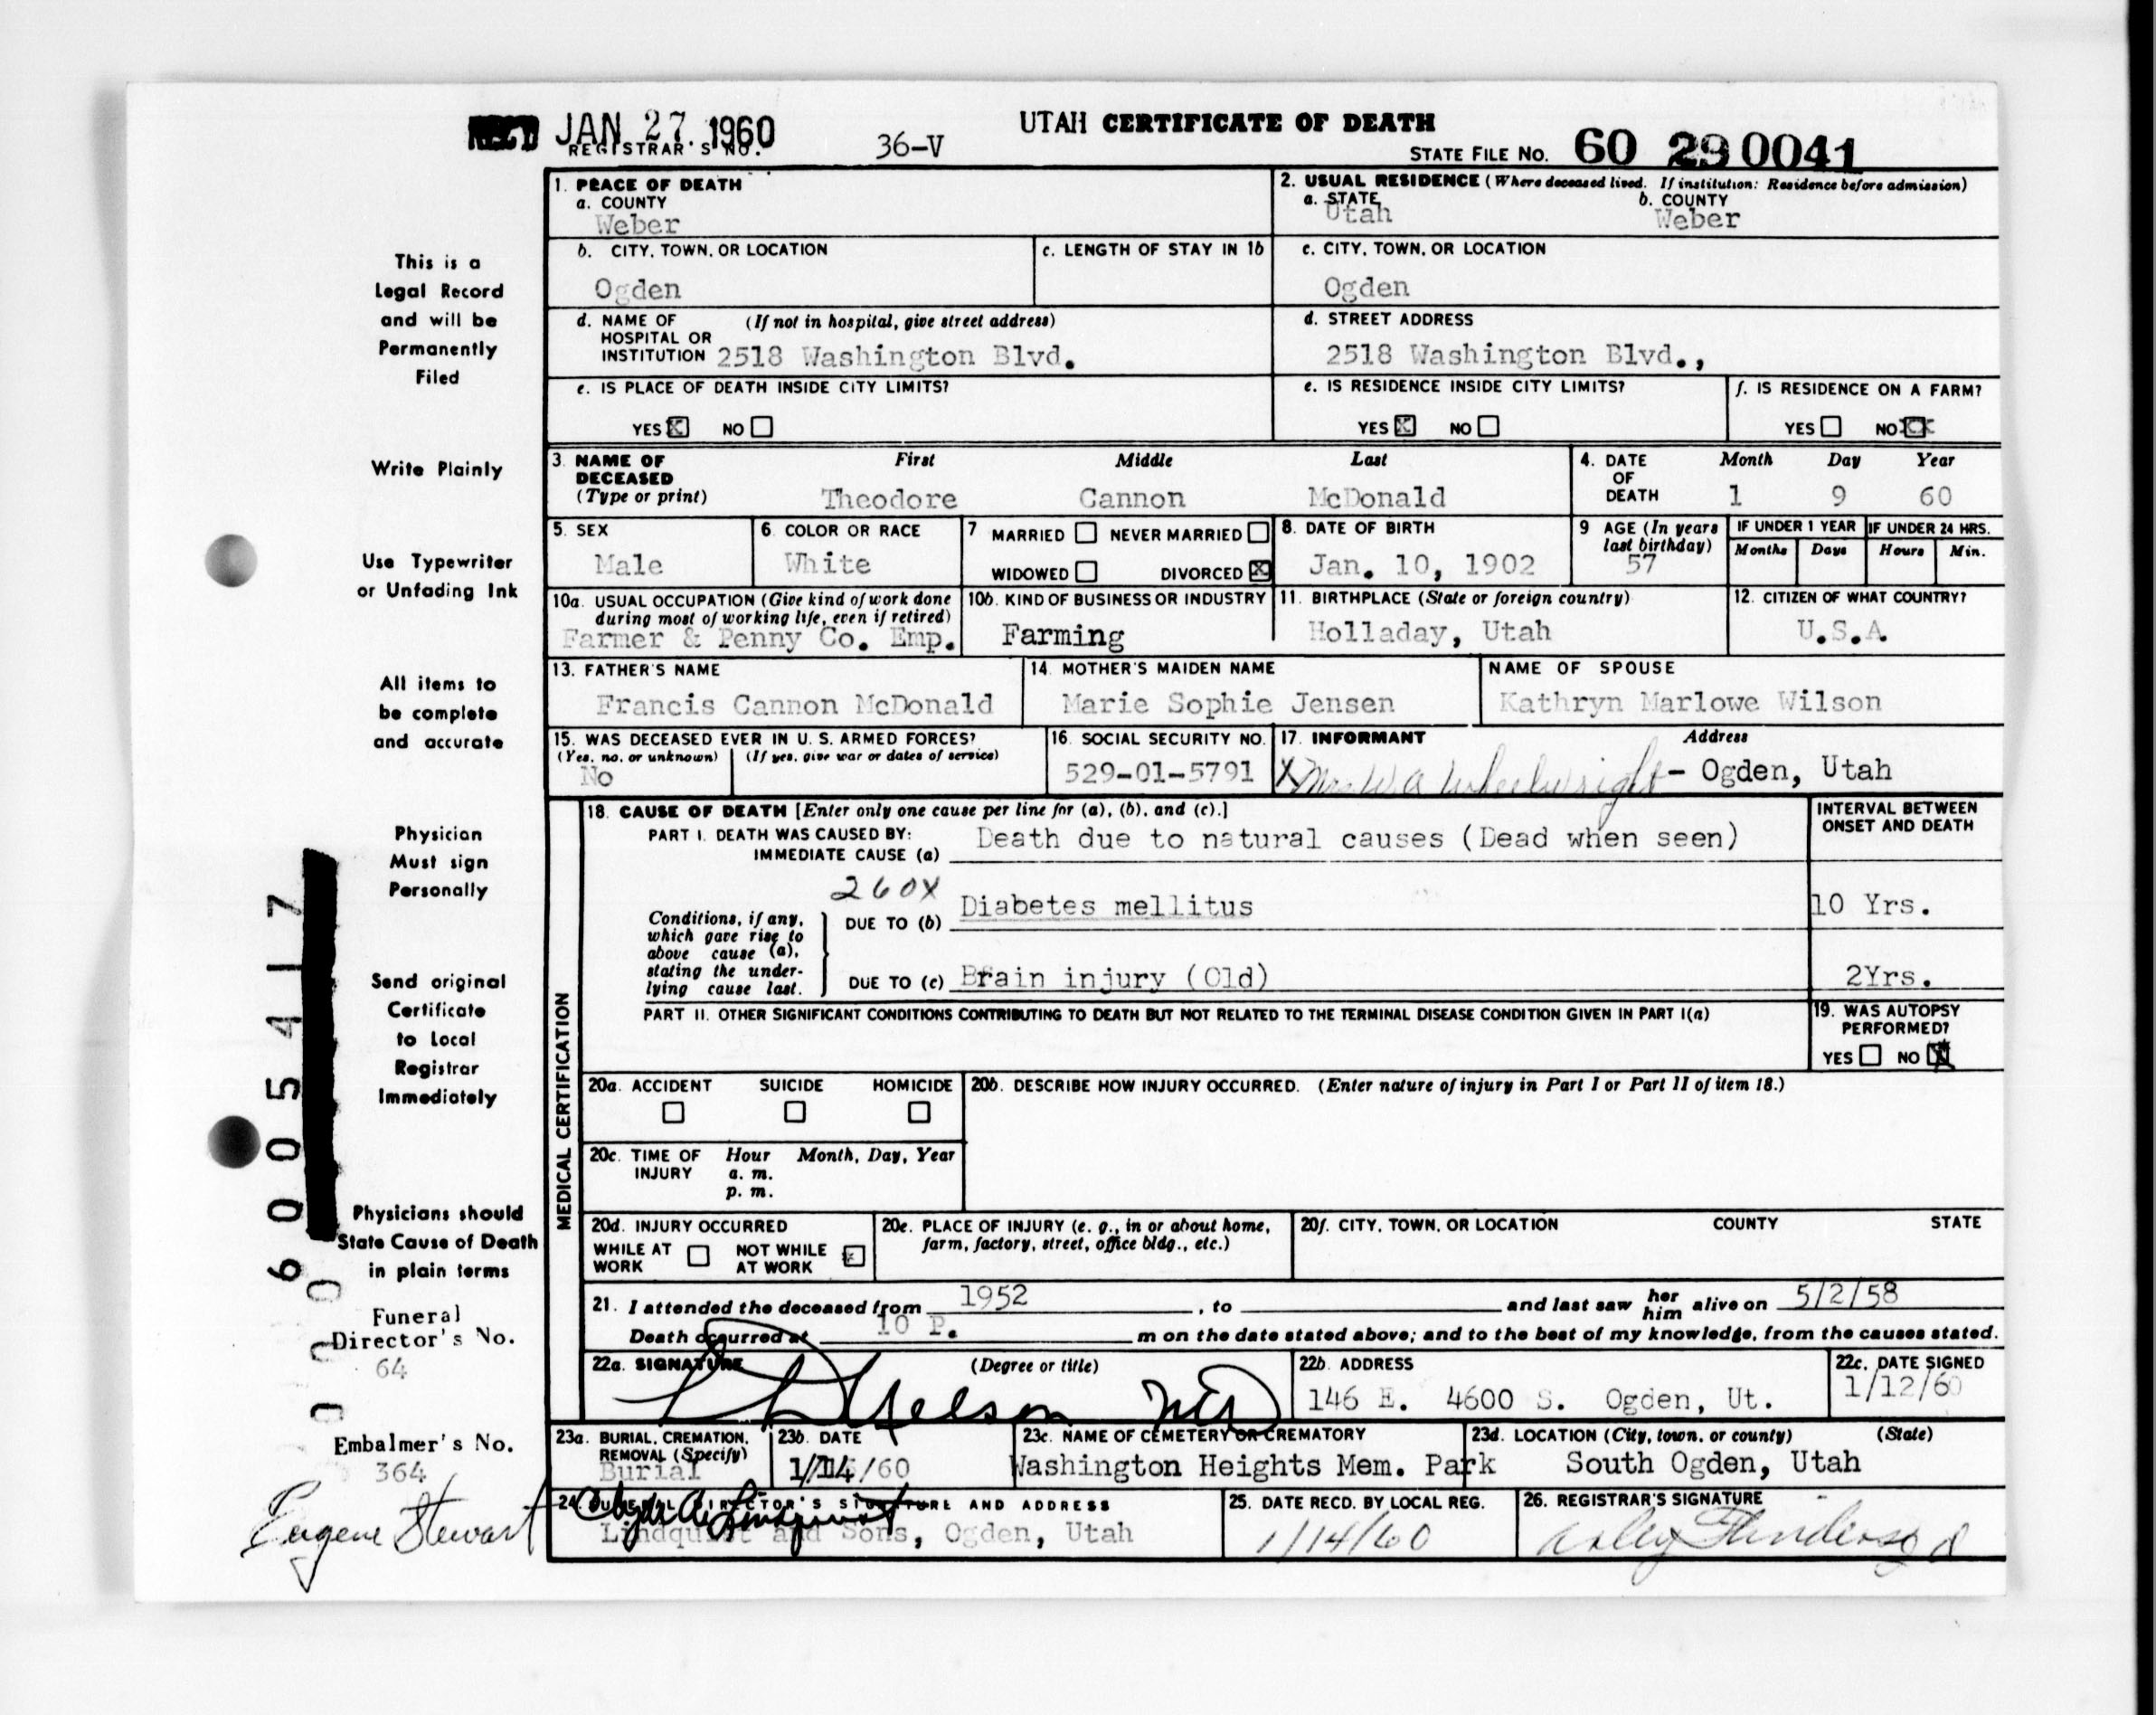 REC'D JAN 27 1960
REGISTRAR'S NO. 36-V
UTAH CERTIFICATE OF DEATH
STATE FILE NO. 60 29 0041
1. PLACE OF DEATH
a. COUNTY
Weber
2. USUAL RESIDENCE (Where deceased lived. If institution: Residence before admission)
a. STATE b. COUNTY
Utah Weber
b. CITY, TOWN, OR LOCATION
Ogden
c. LENGTH OF STAY IN 1b
c. CITY, TOWN, OR LOCATION
Ogden
d. NAME OF (If not in hospital, give street address)
HOSPITAL OR
INSTITUTION 2518 Washington Blvd.
d. STREET ADDRESS
2518 Washington Blvd.,
e. IS PLACE OF DEATH INSIDE CITY LIMITS?
YES X NO
e. IS RESIDENCE INSIDE CITY LIMITS?
YES X NO
f. IS RESIDENCE ON A FARM?
YES NO XX
3. NAME OF First Middle Last
DECEASED
(Type or print) Theodore Cannon McDonald
4. DATE Month Day Year
OF
DEATH 1 9 60
5. SEX
Male
6. COLOR OR RACE
White
7 MARRIED NEVER MARRIED
WIDOWED DIVORCED X
8. DATE OF BIRTH
Jan. 10, 1902
9 AGE (In years
last birthday)
57
IF UNDER 1 YEAR IF UNDER 24 HRS.
Months Days Hours Min.
10a. USUAL OCCUPATION (Give kind of work done
during most of working life, even if retired)
Farmer & Penny Co. Emp.
10b. KIND OF BUSINESS OR INDUSTRY
Farming
11. BIRTHPLACE (State or foreign country)
Holladay, Utah
12. CITIZEN OF WHAT COUNTRY?
U.S.A.
13. FATHER'S NAME
Francis Cannon McDonald
14. MOTHER'S MAIDEN NAME
Marie Sophie Jensen
NAME OF SPOUSE
Kathryn Marlowe Wilson
15. WAS DECEASED EVER IN U. S. ARMED FORCES?
(Yes, no, or unknown) (If yes, give war or dates of service)
No
16. SOCIAL SECURITY NO.
529-01-5791
17. INFORMANT Address
X Mrs W A Wheelwright - Ogden, Utah
MEDICAL CERTIFICATION
18. CAUSE OF DEATH [Enter only one cause per line for (a), (b), and (c).]
PART I. DEATH WAS CAUSED BY:
IMMEDIATE CAUSE (a) Death due to natural causes (Dead when seen)
INTERVAL BETWEEN
ONSET AND DEATH
260X
Conditions, if any,
which gave rise to
above cause (a),
stating the under-
lying cause last.
DUE TO (b) Diabetes mellitus 10 Yrs.
DUE TO (c) Brain injury (Old) 2Yrs.
PART II. OTHER SIGNIFICANT CONDITIONS CONTRIBUTING TO DEATH BUT NOT RELATED TO THE TERMINAL DISEASE CONDITION GIVEN IN PART I(a)
19. WAS AUTOPSY
PERFORMED?
YES NO X
20a. ACCIDENT SUICIDE HOMICIDE
20b. DESCRIBE HOW INJURY OCCURRED. (Enter nature of injury in Part I or Part II of item 18.)
20c. TIME OF Hour Month, Day, Year
INJURY a. m.
p. m.
20d. INJURY OCCURRED
WHILE AT NOT WHILE
WORK AT WORK x
20e. PLACE OF INJURY (e. g., in or about home,
farm, factory, street, office bldg., etc.)
20f. CITY, TOWN, OR LOCATION COUNTY STATE
21. I attended the deceased from 1952, to and last saw her him alive on 5/2/58
Death occurred at 10 P. m on the date stated above; and to the best of my knowledge, from the causes stated.
22a. SIGNATURE (Degree or title)
Nelson MD
22b. ADDRESS
146 E. 4600 S. Ogden, Ut.
22c. DATE SIGNED
1/12/60
23a. BURIAL, CREMATION,
REMOVAL (Specify)
Burial
23b. DATE
1/14/60
23c. NAME OF CEMETERY OR CREMATORY
Washington Heights Mem. Park
23d. LOCATION (City, town, or county) (State)
South Ogden, Utah
24. FUNERAL DIRECTOR'S SIGNATURE AND ADDRESS
Clyde A. Lindquist
Lindquist and Sons, Ogden, Utah
25. DATE RECD. BY LOCAL REG.
1/14/60
26. REGISTRAR'S SIGNATURE
This is a
Legal Record
and will be
Permanently
Filed
Write Plainly
Use Typewriter
or Unfading Ink
All items to
be complete
and accurate
Physician
Must sign
Personally
Send original
Certificate
to Local
Registrar
Immediately
Physicians should
State Cause of Death
in plain terms
Funeral
Director's No.
64
Embalmer's No.
364
Eugene Stewart
6005417